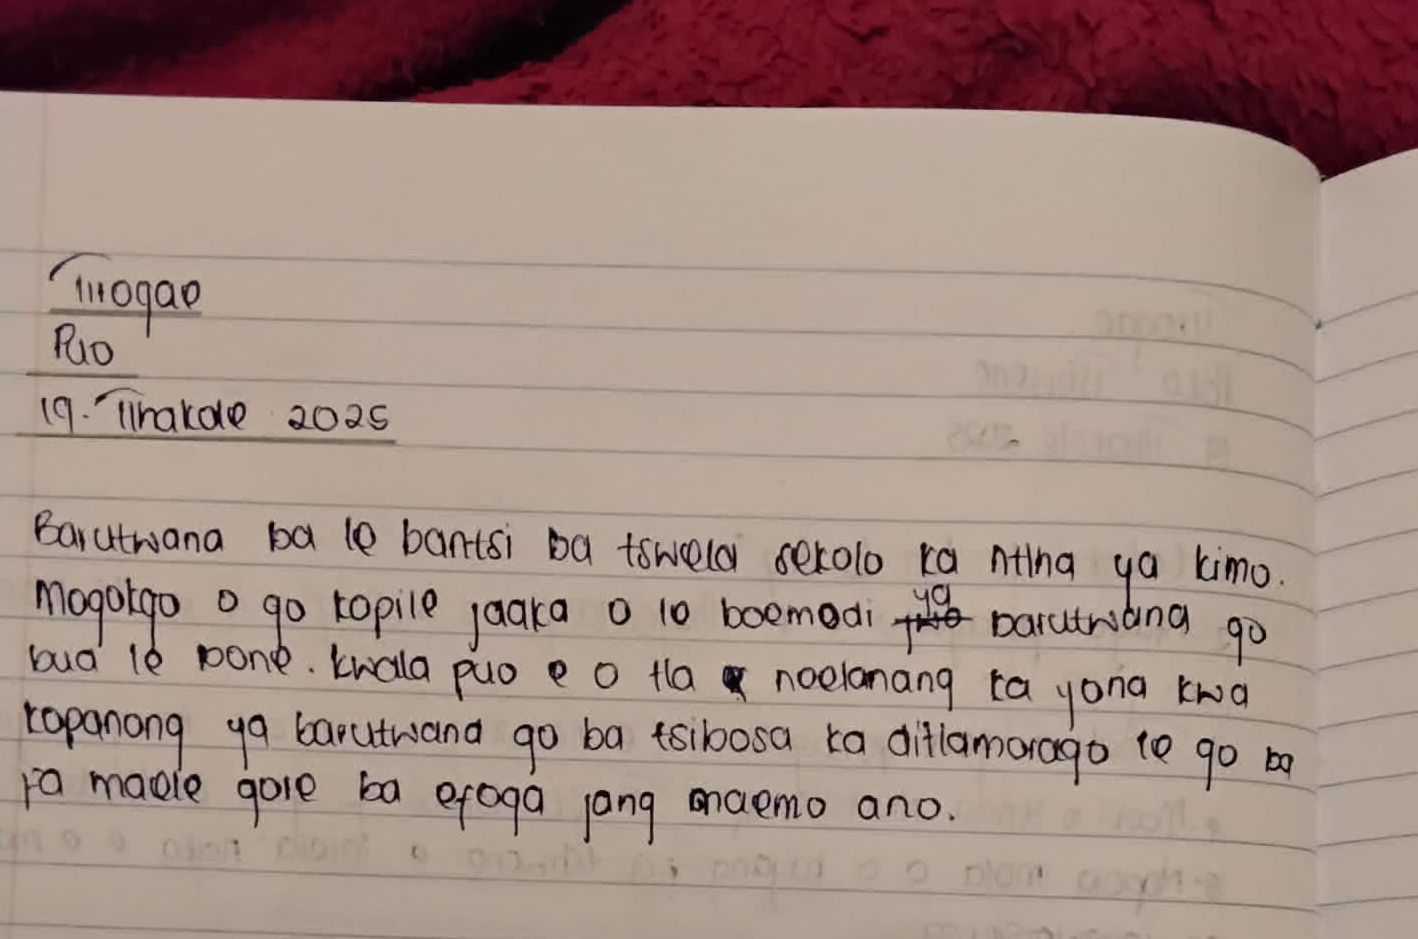 Tirogae
Puo
19. Tlhakole 2025
Barutwana ba le bantsi ba tswela sekolo ka ntlha ya kimo.
Mogokgo o go kopile jaaka o le boemedi ya barutwana go
bua le bone. Kwala puo e o tla noelanang ka yona kwa
kopanong ya barutwana go ba tsibosa ka ditlamorago le go ba
fa maele gore ba efoga jang maemo ano.